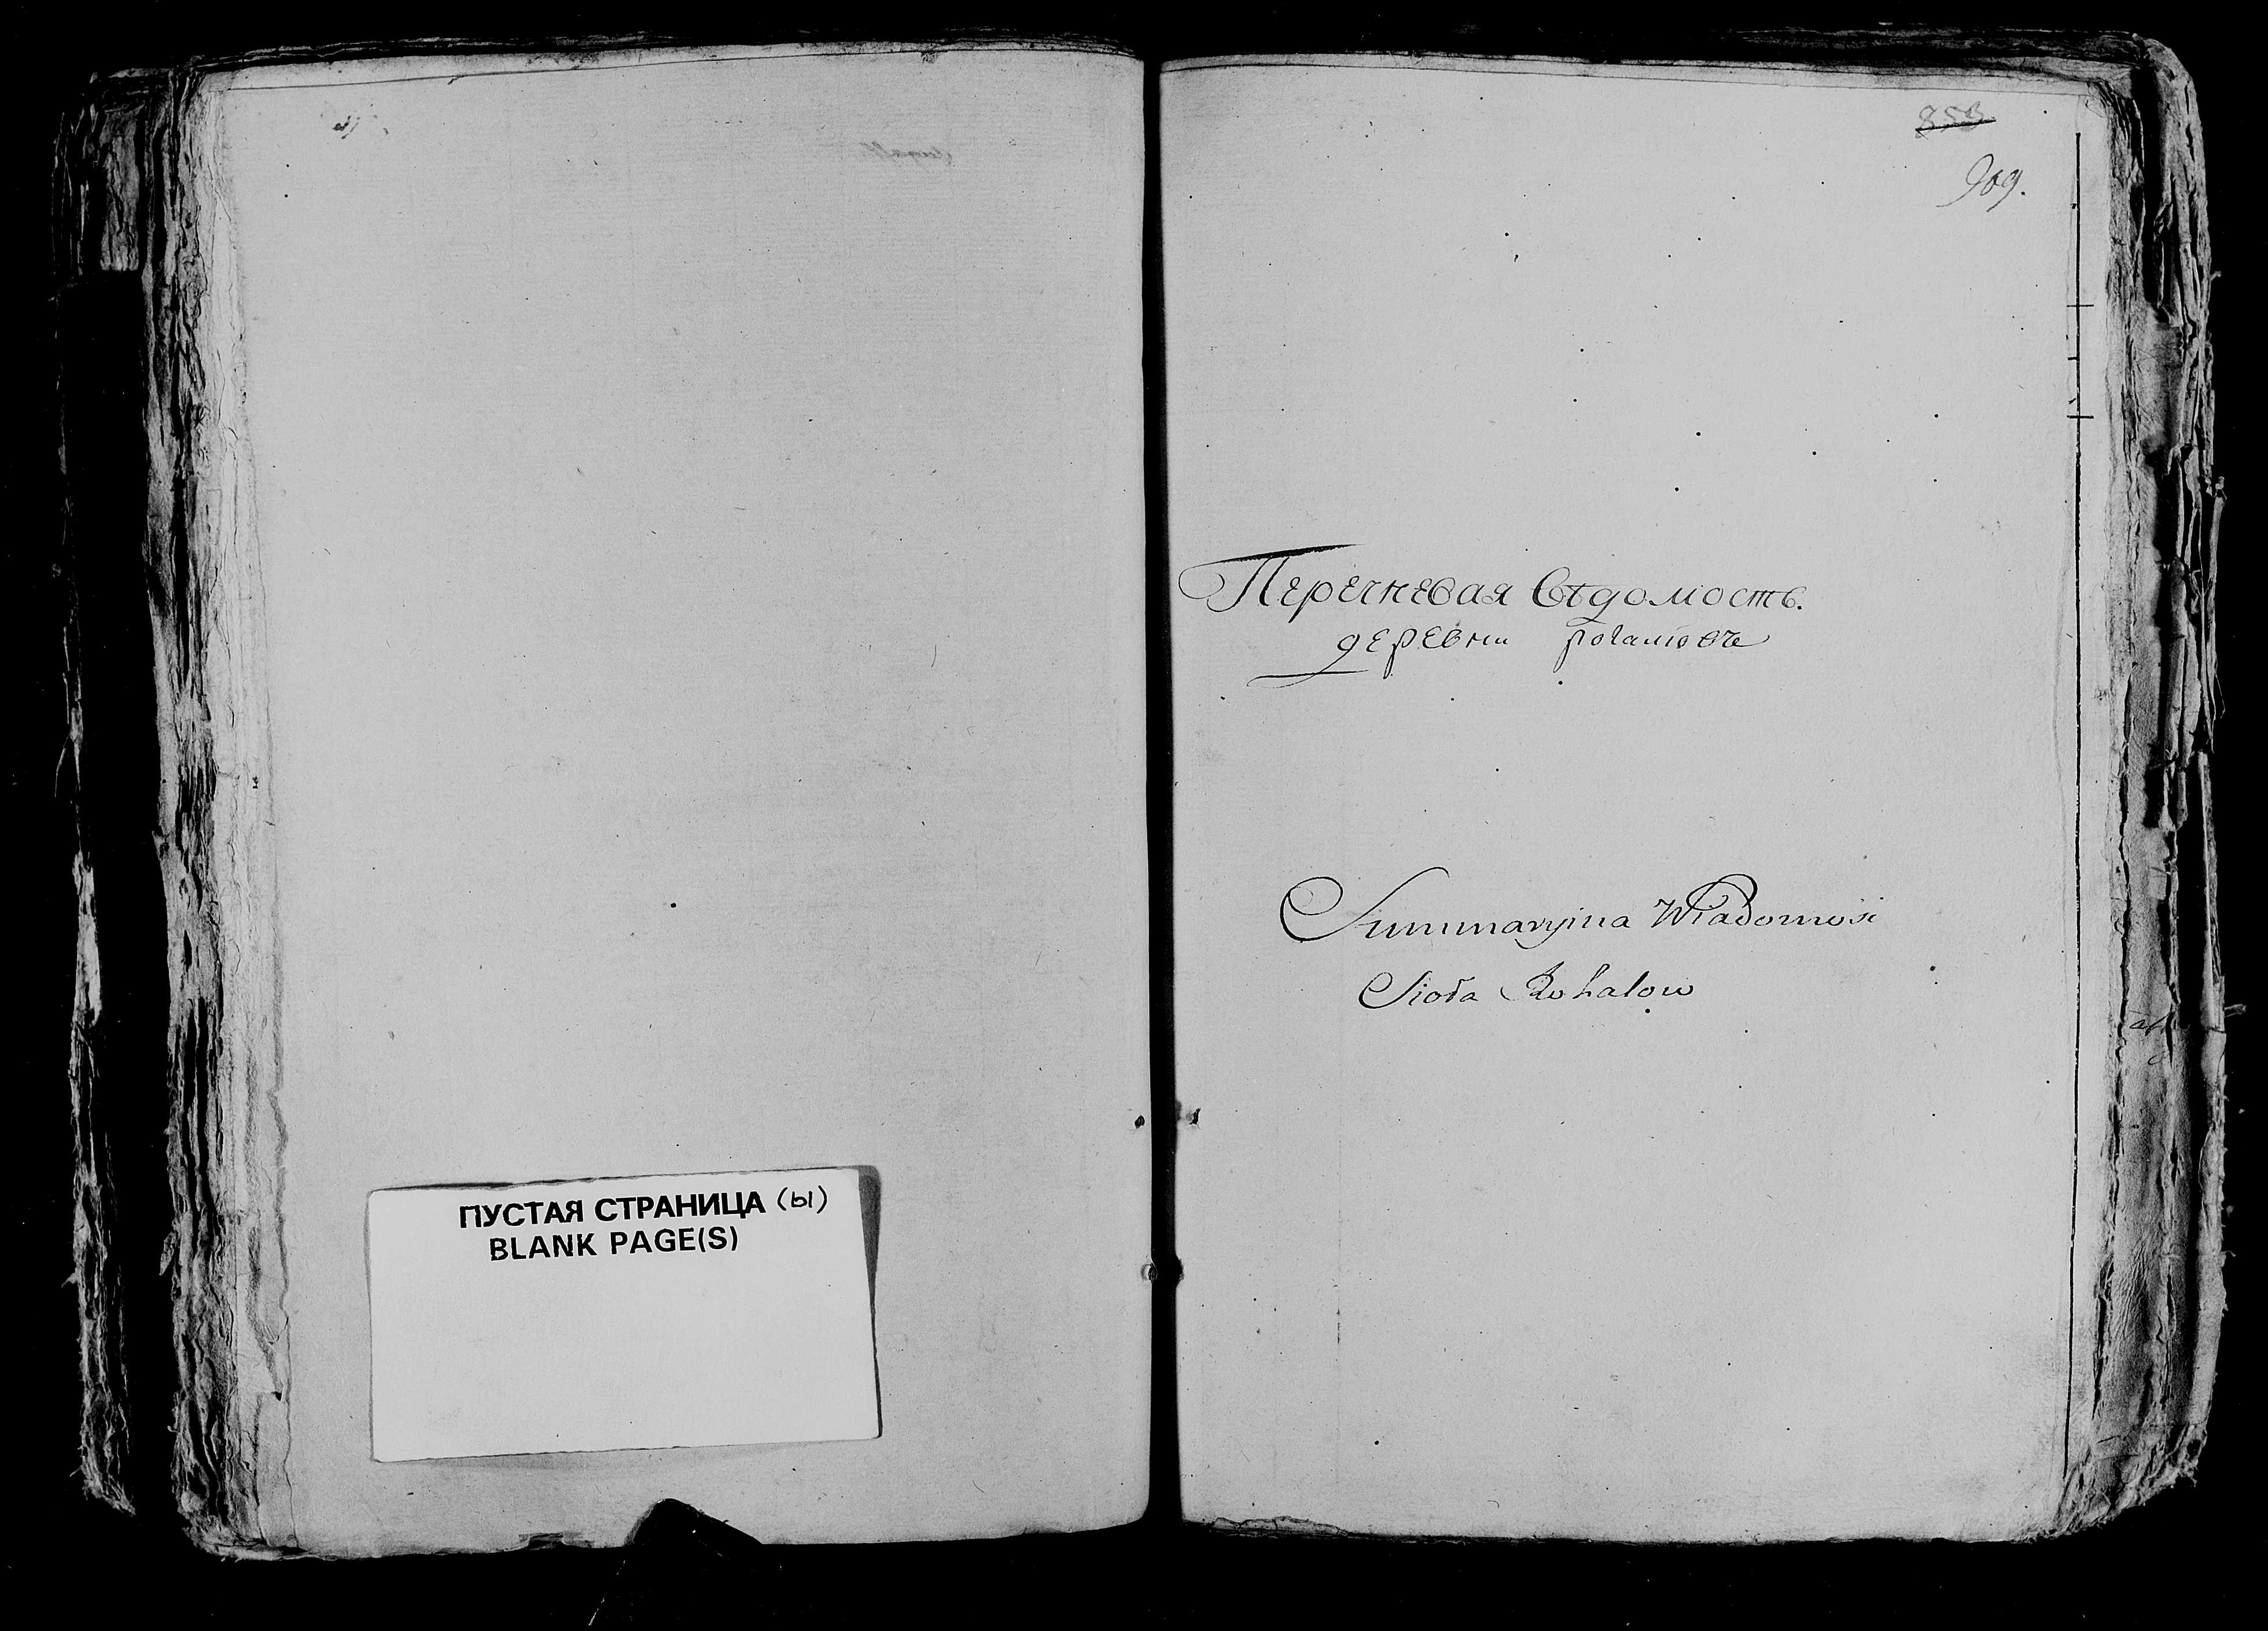 ПУСТАЯ СТРАНИЦА (ы)
BLANK PAGE(S)
853
909.
Перечневая Вѣдомость.
деревни рогаловъ
Summaryina Wiadomość
Sioła Rohalow